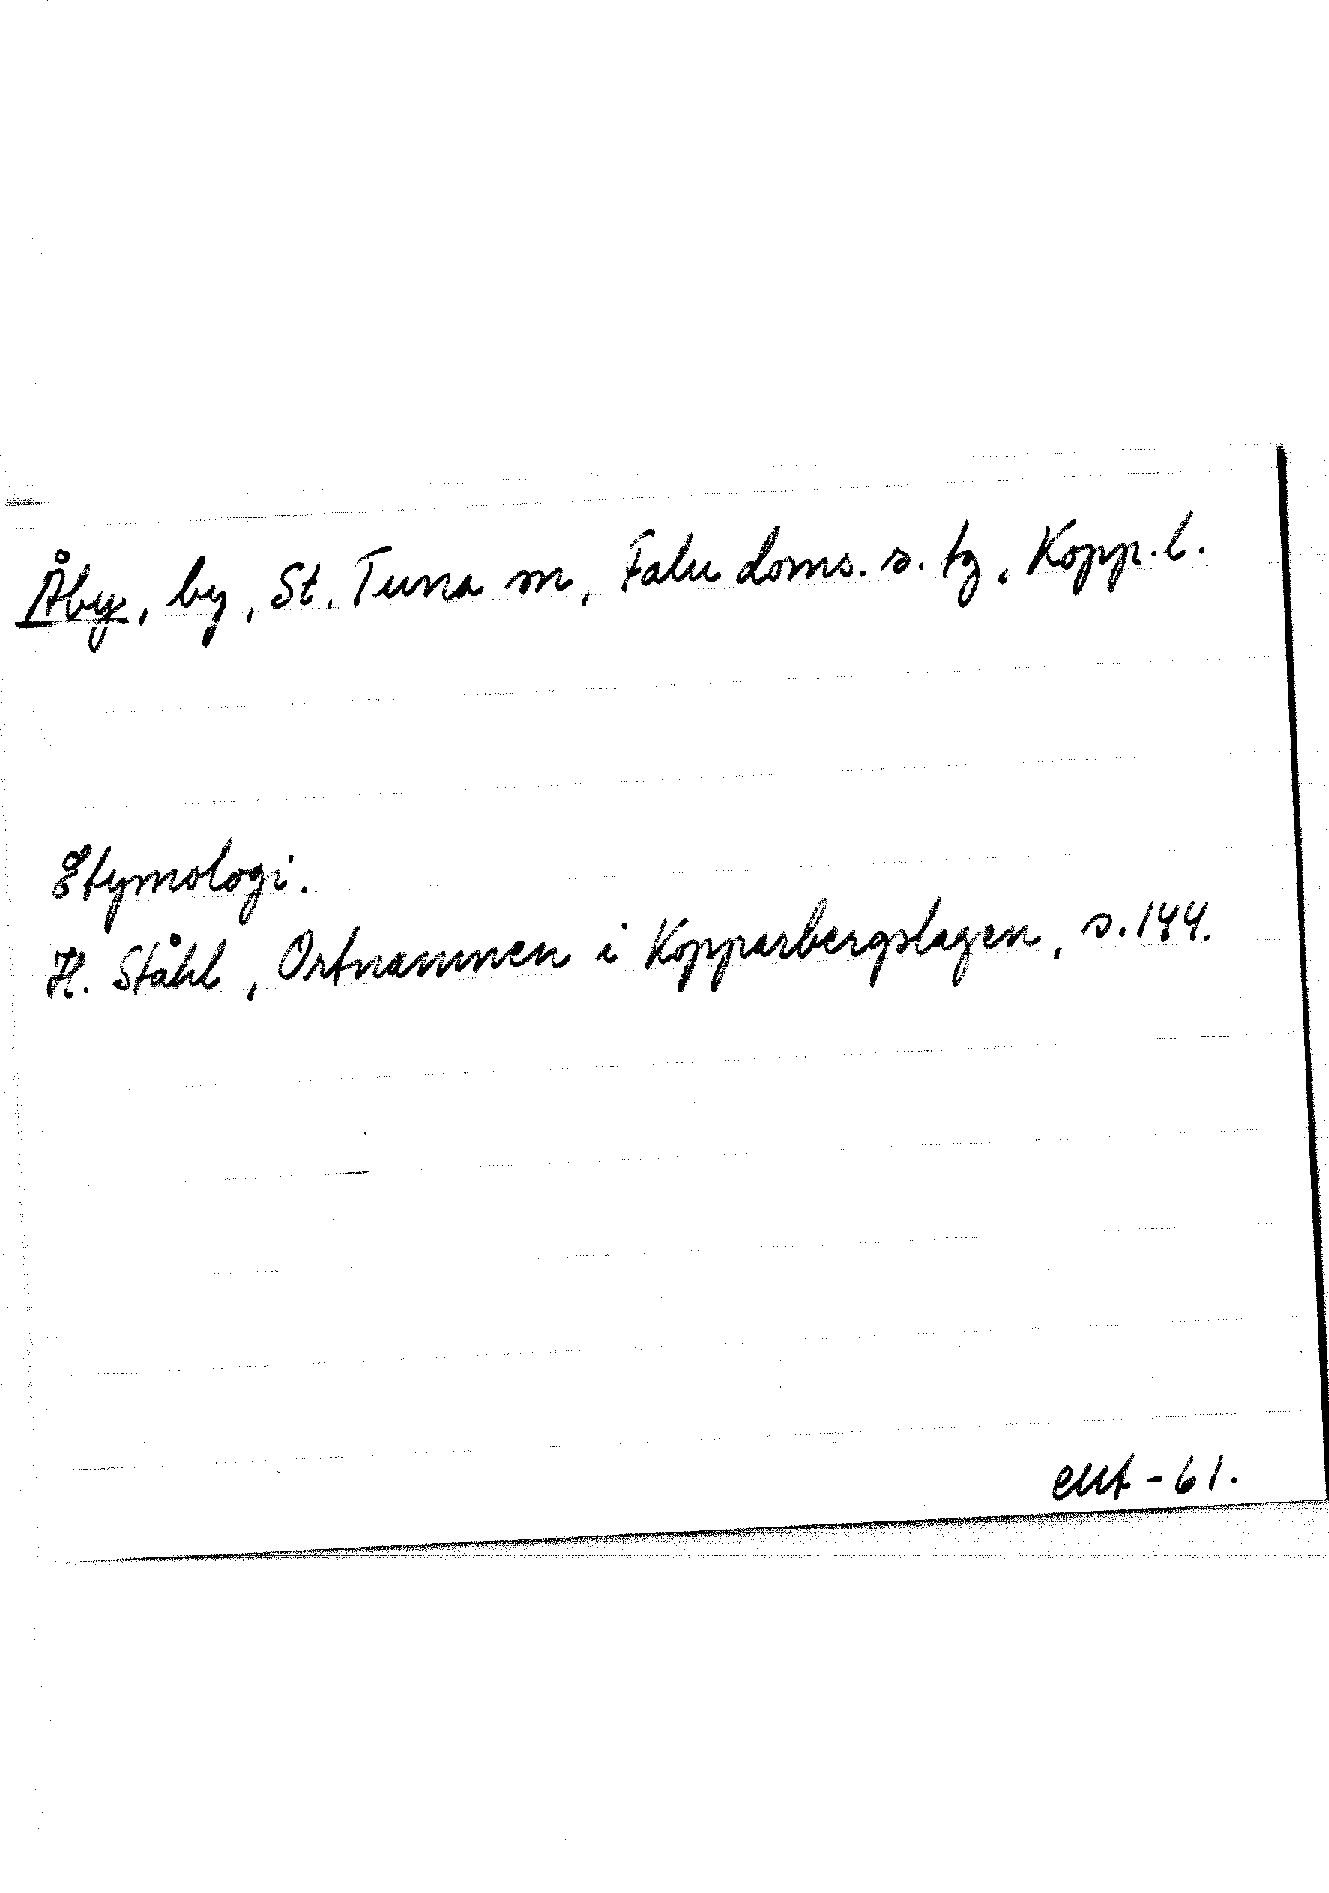 Åby, by, St. Tuna sn, Falu doms. s. tg, Kopp. l.
Etymologi.
H. Ståhl, Ortnamnen i Kopparbergslagen, s. 144.
-61.